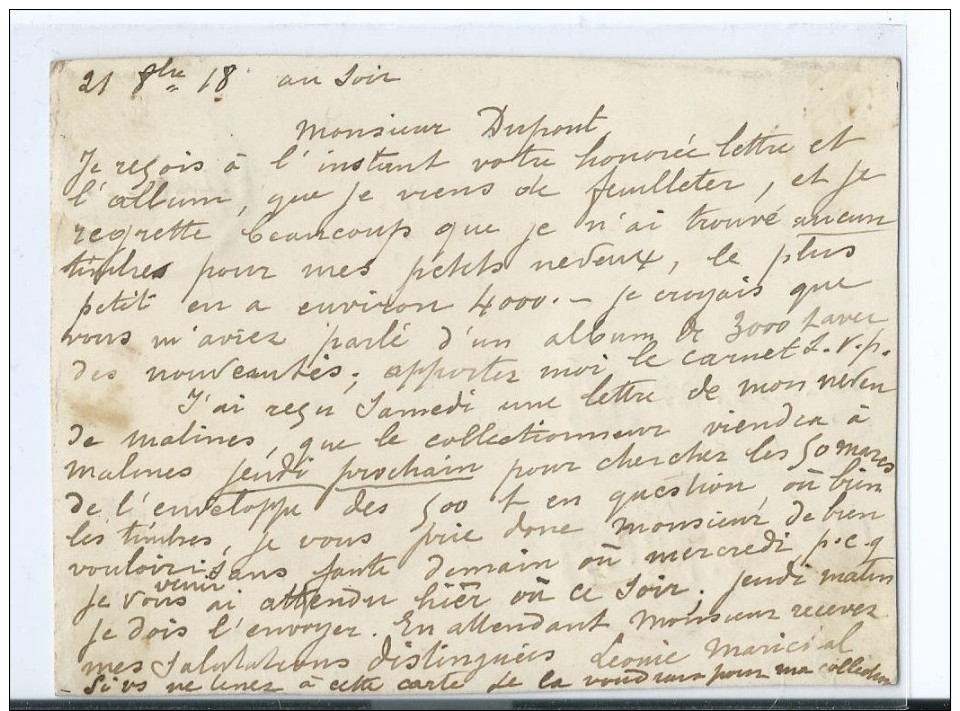 21 8bre 18 au soir
Monsieur Dupont
Je reçois à l'instant votre honorée lettre et
l'album, que je viens de feuilleter, et je
regrette beaucoup que je n'ai trouvé aucun
timbres pour mes petits neveux, le plus
petit en a environ 4000. – je croyais que
vous m'aviez parlé d'un album de 3000 t avec
des nouveautés; apportez moi le carnet s.v.p.
J'ai reçu Samedi une lettre de mon neveu
de Malines, que le collectionneur viendra à
Malines jeudi prochain pour chercher les 50 marcs
de l'enveloppe des 500 t en question, où bien
les timbres, je vous prie donc Monsieur de bien
vouloir venir sans faute demain où mercredi p.c.q
je vous ai attendu hier où ce soir. jeudi matin
je dois l'envoyer. En attendant Monsieur recevez
mes salutations distinguées Léonie
- Si vs ne tenez à cette carte je la voudrais pour ma collection